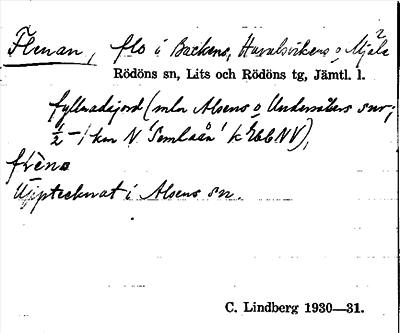 Flenan, flo i Backens, Huvulsvikens o Mjäls
Rödöns sn, Lits och Rödöns tg, Jämtl. l.
fyllnadsjord (mln Alsens o Undersåkers snr;
½–1 km N 'Semlaån' k EbbNV),
Upptecknat i Alsens sn.
C. Lindberg 1930—31.